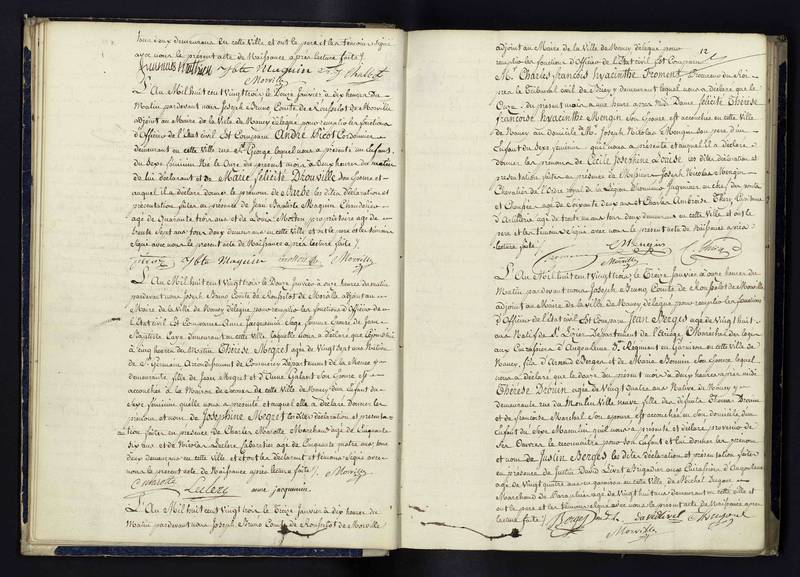 tous deux demeurans en cette Ville et ont le pere et les temoins signé
avec nous le présent acte de Naissance après lecture faite /.
Ybte Maquin
Morville
L'An Mil huit cent Vingt trois le Douze Janvier à dix heures du
Matin pardevant nous Joseph Bruno Comte de Rousselot de Morville
adjoint au Maire de la Ville de Nancy délégué pour remplir les fonctions
d'Officier de l'Etat civil Est Comparu André Picot Cordonnier
demeurant en cette Ville rue St George lequel nous a présenté un Enfant
du Sexe féminin Né le Onze du présent mois à Deux heures du matin
de lui déclarant et de Marie Félicité Drouville Son épouse et
auquel il a déclaré donner le prénom de Barbe les dites déclaration et
présentation faites en présence de Jean Baptiste Maquin Chaudelier
agé de Quarante trois ans et de Louis Mottin propriétaire agé de
trente Sept ans tous deux demeurans en cette Ville et ont le pere et les témoins
Signé avec nous le présent acte de Naissance après lecture faite /.
picoz Ybte Maquin Morville
L'An Mil huit cent Vingt trois le Douze Janvier à onze heures du matin
pardevant nous Joseph Bruno Comte de Rousselot de Morville adjoint au
Maire de la Ville de Nancy délégué pour remplir les fonctions d'Officier de
l'Etat civil Est Comparue Anne Jacquemin Sage femme Epouse de Jean
Baptiste demeurant en cette Ville laquelle nous a déclaré que Cejourd'hui
à Cinq heures du Matin Thérèse Megret agée de Vingt sept ans Native
de St Germain Arrondissement de Commercy Département de la Meuse y
demeurante fille de Jean Megret et d'Anne Galant Son épouse est
accouchée à la Maison de Secours de cette Ville de Nancy d'un Enfant du
Sexe féminin qu'elle nous a présenté et auquel elle a déclaré donner les
prénom et nom de Josephine Megret les dites déclaration et présenta
tion faites en présence de Charles Marotte Marchand agé de Cinquante
Six ans et de Nicolas Leclerc agé de Cinquante quatre ans tous
deux demeurans en cette Ville et ont les déclarant et témoins signé avec
nous le présent acte de Naissance après lecture faite /. Morville
C Marotte Leclerc anne jacquemin
L'An Mil huit cent Vingt trois le Treize Janvier à dix heures du
Matin pardevant nous Joseph Bruno Comte de Rousselot de Morville
12
adjoint au Maire de la Ville de Nancy délégué pour
remplir les fonctions d'Officier de l'Etat civil Est Comparu
Mr Charles françois hyacinthe Froment Procureur du Roi
près le Tribunal civil de Briey y demeurant lequel nous a déclaré que le
Onze du présent mois à une heure après midi Dame félicité Thérèse
françoise hyacinthe Mengin Son Epouse est accouchée en cette Ville
de Nancy au domicile de Mr Joseph Nicolas Mengin son pere d'un
Enfant du Sexe féminin qu'il nous a présenté et auquel il a déclaré
donner les prénoms de Cécile Josephine Louise les dites déclaration et
présentation faites en présence de Messieurs Joseph Nicolas Mengin
Chevalier de l'Ordre royal de la Légion d'honneur Ingénieur en chef des ponts
et Chaussées agé de Soixante Deux ans et Charles Ambroise Thiry Capitaine
d'Artillerie agé de trente ans tous deux demeurans en cette Ville et ont le
pere et les témoins Signé avec nous le présent acte de Naissance après
lecture faite /.
froment Mengin Morville
L'An Mil huit cent Vingt trois le Treize Janvier à onze heures du
Matin pardevant nous Joseph Bruno Comte de Rousselot de Morville
adjoint au Maire de la Ville de Nancy délégué pour remplir les fonctions
d'Officier de l'Etat civil Est Comparu Jean Bergès agé de Vingt huit
ans Natif de St Lizier Département de l'Ariège Maréchal des logis
aux Cuirassiers d'Angoulême 3e Régiment en Garnison en cette Ville de
Nancy, fils d'Arnaud Bergès et de Marie Bonnin Son Epouse lequel
nous a déclaré que le douze du présent mois à deux heures après midi
Thérèse Drouin agée de Vingt Quatre ans Native de Nancy y
demeurante rue du Moulin Ville neuve fille des défunts Thomas Drouin
et de françoise Marchal Son épouse est accouchée en son domicile d'un
Enfant du Sexe Masculin qu'il nous a présenté et déclaré provenir de
Ses Œuvres le reconnaître pour son Enfant et lui donner les prénom
et nom de Justin Bergès les dites déclaration et présentation faites
en présence de Justin David Livet Brigadier aux Cuirassiers d'Angoulême
agé de Vingt Quatre ans en garnison en cette Ville et de Michel Dugon
Marchand de Parapluie agé de Vingt huit ans demeurant en cette Ville et
ont le pere et les témoins Signé avec nous le présent acte de Naissance après
lecture faite /. Bergès Morville